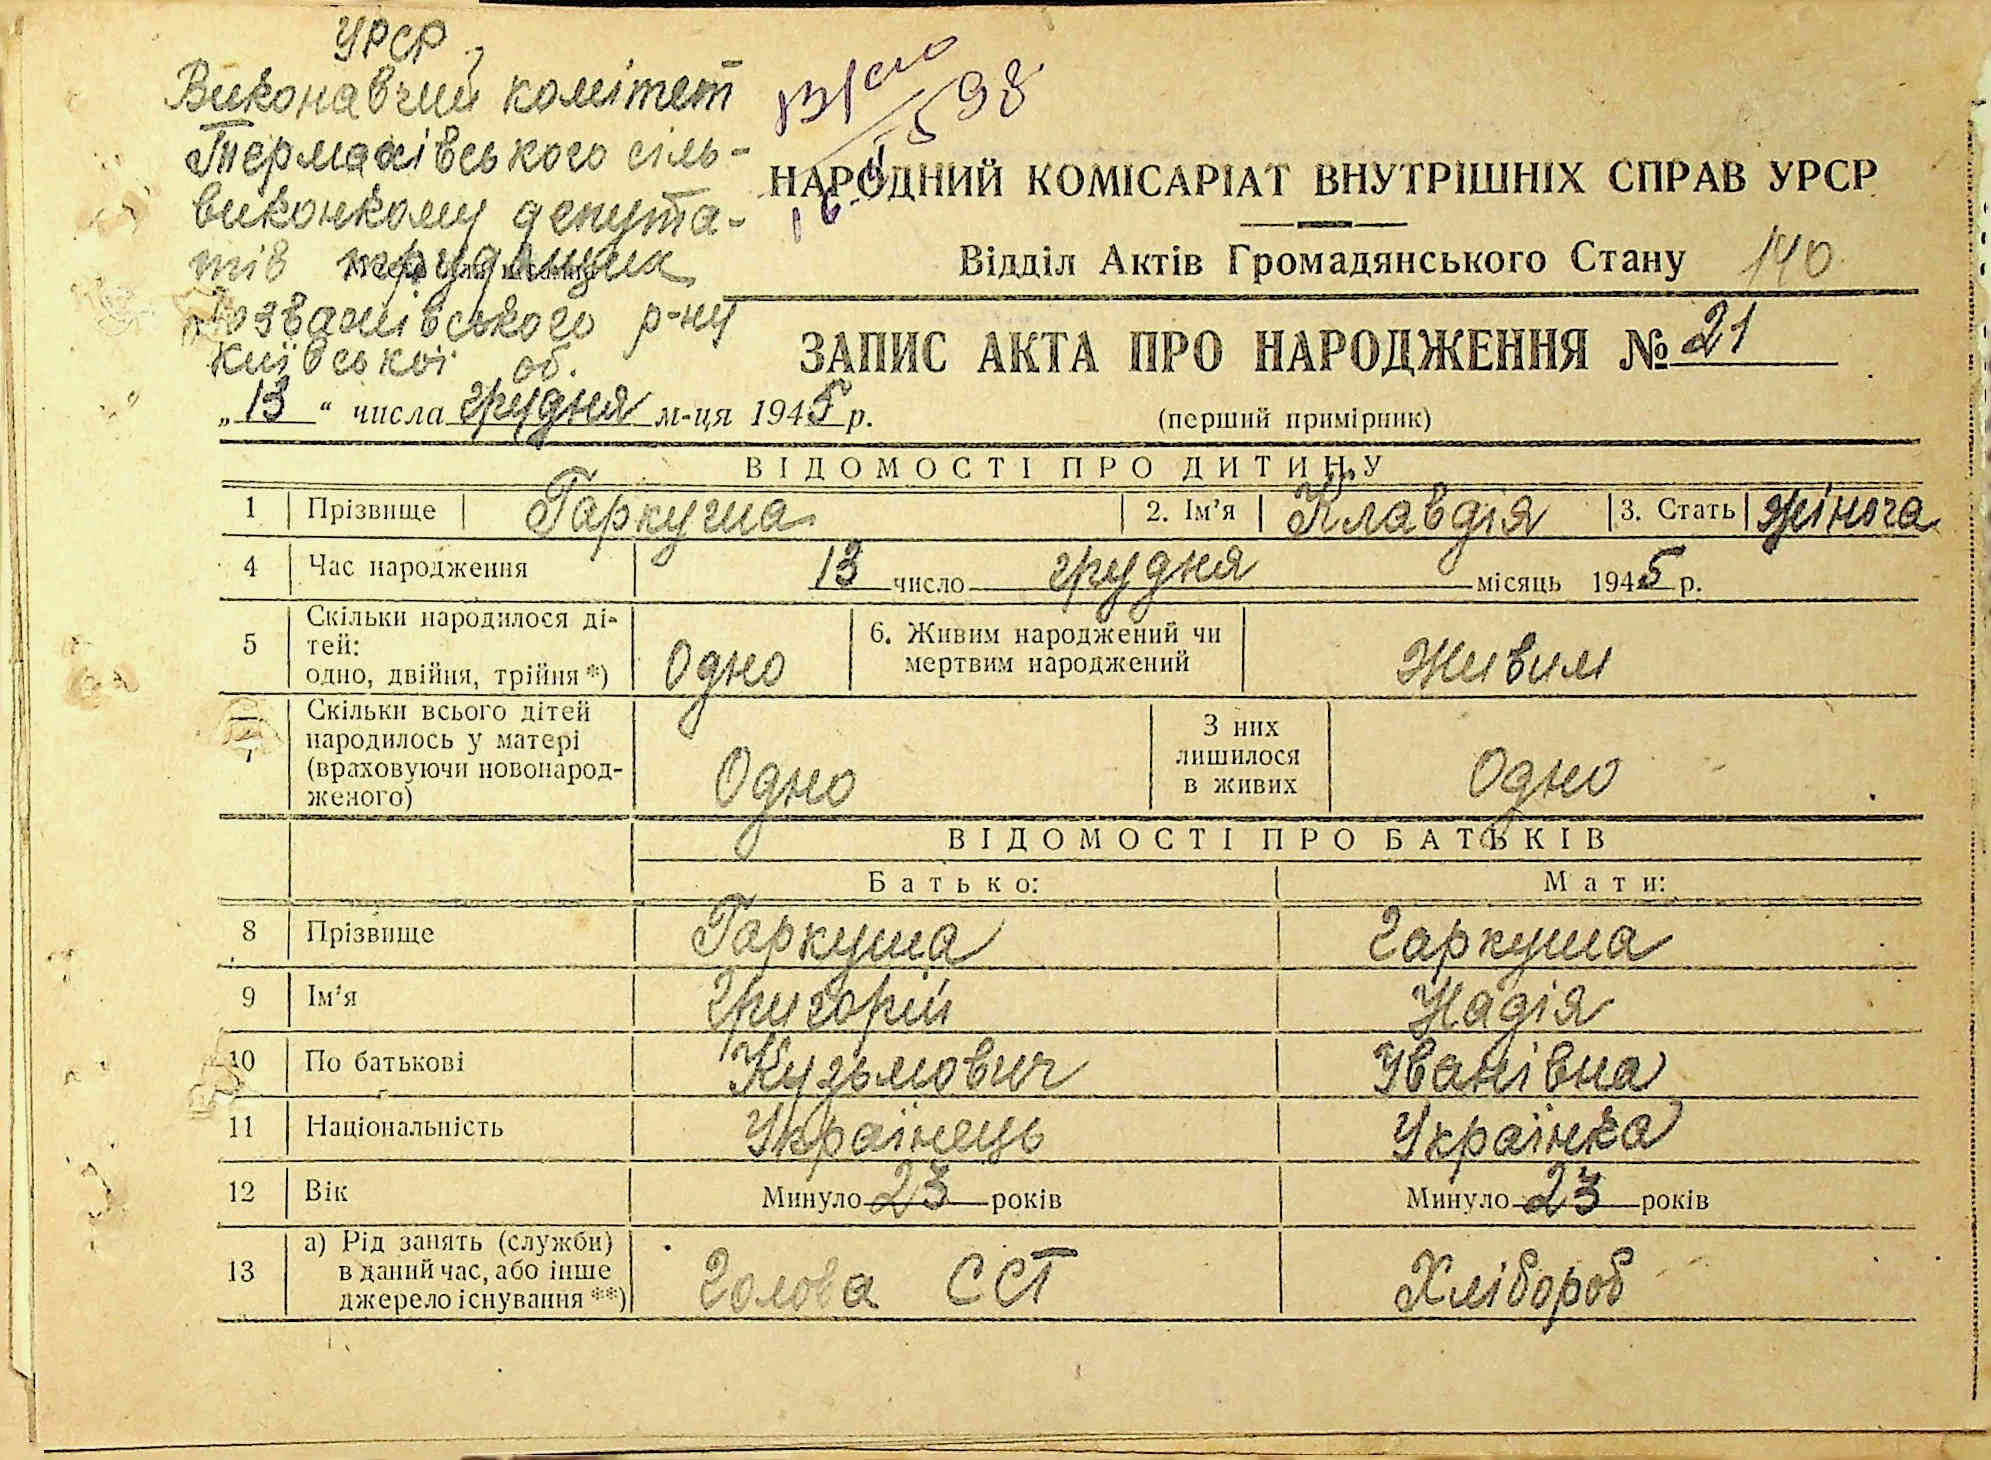 УРСР
Виконавчий комітет
Термахівського сіль-
виконкому депута-
тів трудящих
Розважівського р-ну
Київської об.
98
НАРОДНИЙ КОМІСАРІАТ ВНУТРІШНІХ СПРАВ УРСР
Відділ Актів Громадянського Стану 140
ЗАПИС АКТА ПРО НАРОДЖЕННЯ № 21
„13“ числа грудня м-ця 1945 р. (перший примірник)
ВІДОМОСТІ ПРО ДИТИНУ
1 Прізвище Гаркуша 2. Ім'я Клавдія 3. Стать жіноча
4 Час народження 13 число грудня місяць 1945 р.
5 Скільки народилося ді-
тей:
одно, двійня, трійня *) Одно 6. Живим народжений чи
мертвим народжений Живим
7 Скільки всього дітей
народилось у матері
(враховуючи новонарод-
женого) Одно З них
лишилося
в живих Одно
ВІДОМОСТІ ПРО БАТЬКІВ
Батько: Мати:
8 Прізвище Гаркуша Гаркуша
9 Ім'я Григорій Надія
10 По батькові Кузьмович Іванівна
11 Національність Українець Українка
12 Вік Минуло 23 років Минуло 23 років
13 а) Рід занять (служби)
в даний час, або інше
джерело існування **) Голова ССТ Хлібороб